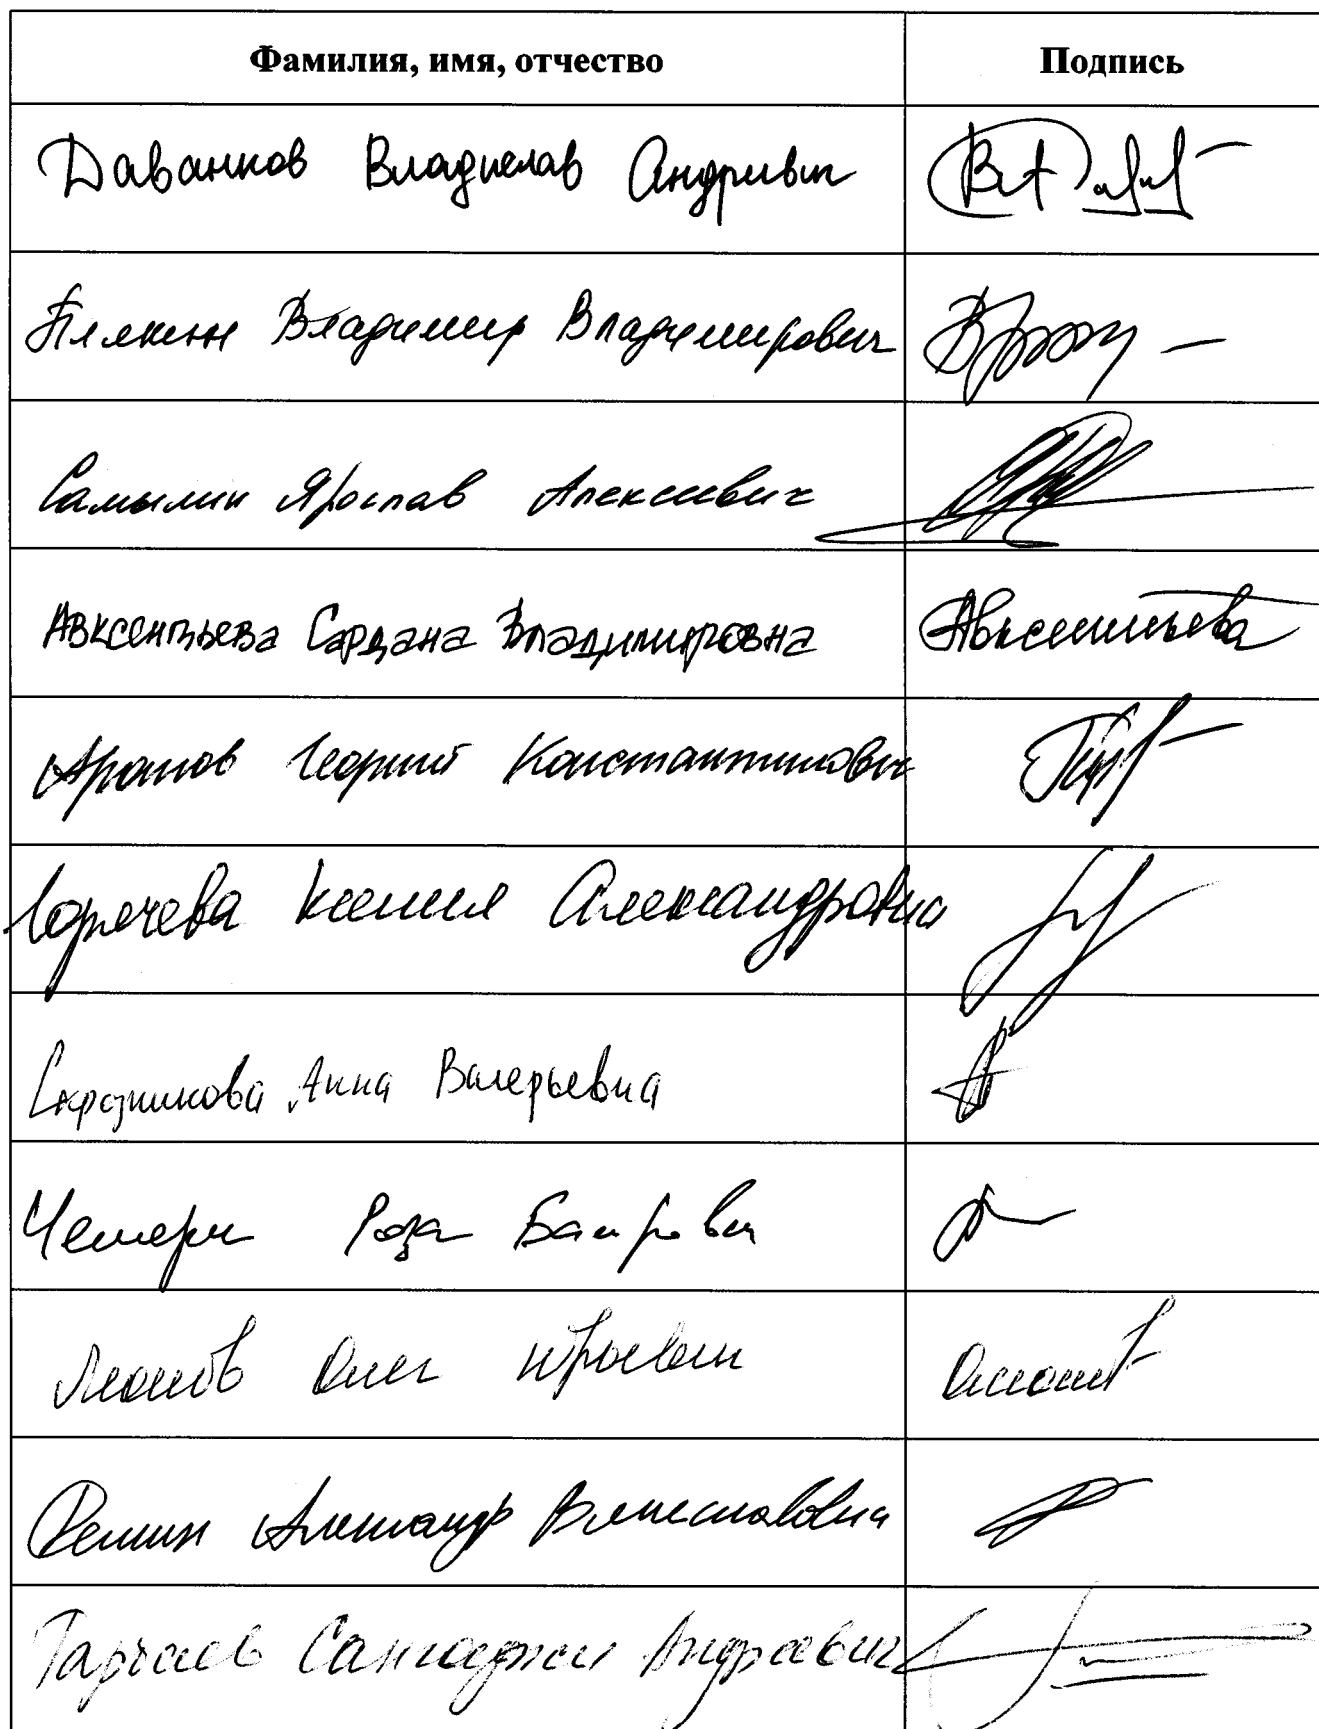 Фамилия, имя, отчество Подпись
Даванков Владислав Андреевич
Плякин Владимир Владимирович
Самылин Ярослав Алексеевич
Авксентьева Сардана Владимировна Авксентьева
Арапов Георгий Константинович
Горячева Ксения Александровна
Скрозникова Анна Валерьевна
Чемерис Роза Баировна
Леонов Олег Юрьевич
Демин Александр Вячеславович
Тарчаев Сангаджи Андреевич